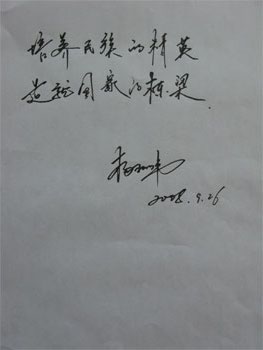 培养民族的精英
造就国家的栋梁
2008.9.26